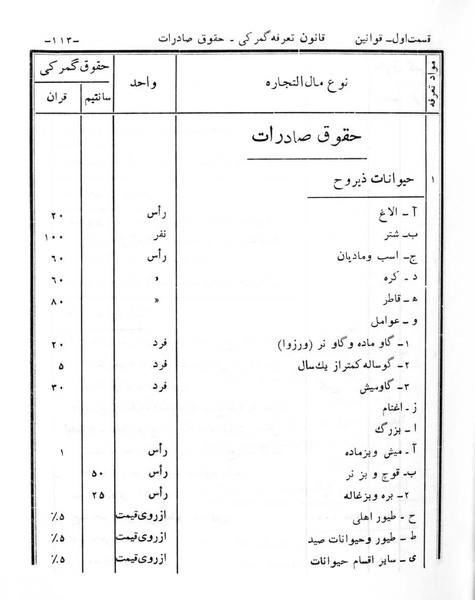 قسمت اول ـ قوانین قانون تعرفه گمرکی ـ حقوق صادرات —۱۱۳—
مواد تعرفه نوع مال التجاره واحد حقوق گمرکی
سانتیم قران
حقوق صادرات
۱ حیوانات ذیروح
آ ـ الاغ رأس ۲۰
ب ـ شتر نفر ۱۰۰
ج ـ اسب ومادیان رأس ۶۰
د ـ کره » ۶۰
ه ـ قاطر » ۸۰
و ـ عوامل
۱ ـ گاو ماده وگاو نر (ورزوا) فرد ۲۰
۲ ـ گوساله کمتر از یك سال فرد ۵
۳ ـ گاومیش فرد ۳۰
ز ـ اغنام
ا ـ بزرگ
آ ـ میش وبزماده رأس ۱
ب ـ قوچ و بز نر رأس ۵۰
۲ ـ بره و بزغاله رأس ۲۵
ح ـ طیور اهلی ازروی قیمت ۵٪
ط ـ طیور وحیوانات صید ازروی قیمت ۵٪
ی ـ سایر اقسام حیوانات ازروی قیمت ۵٪